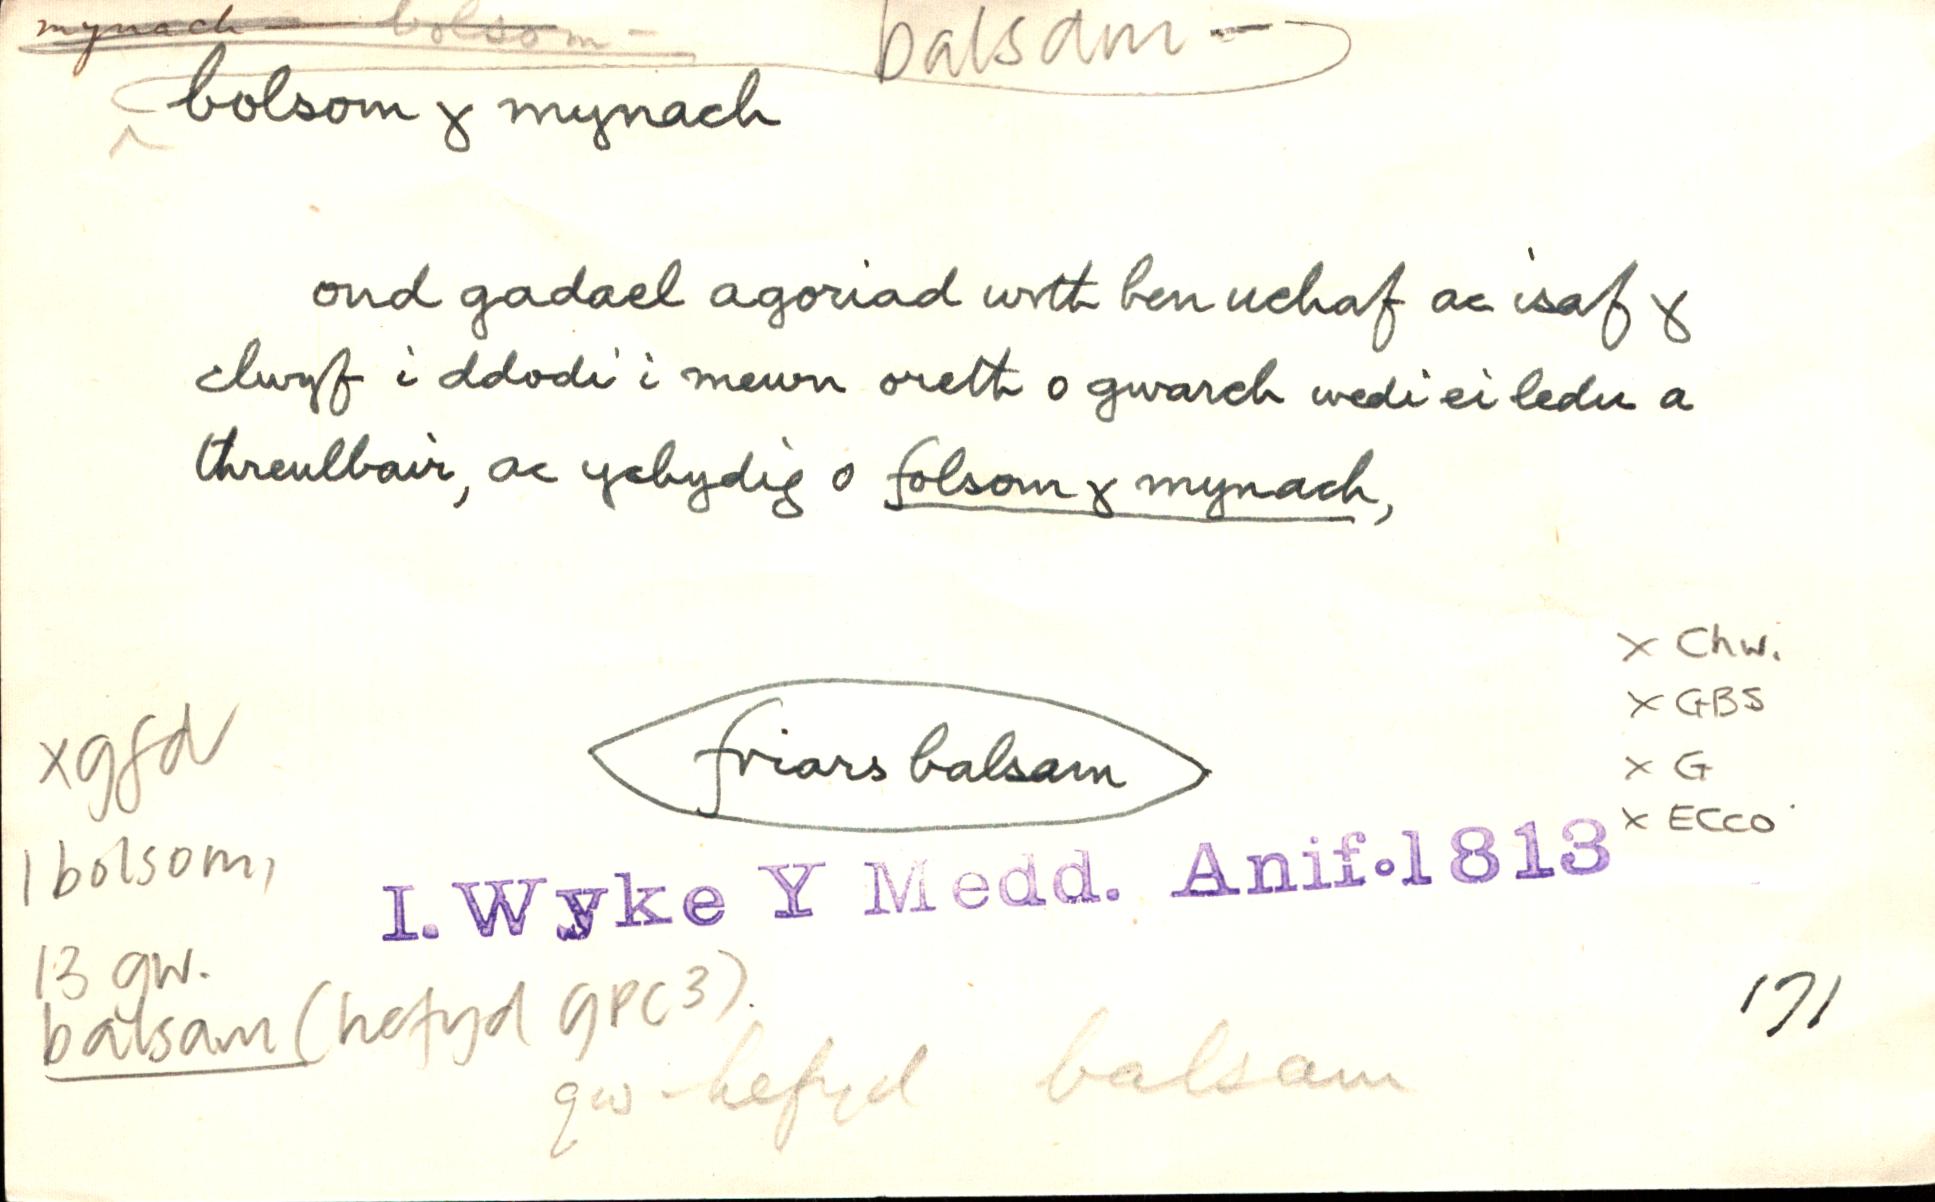 mynach bolsom -
balsam -
bolsom y mynach
ond gadael agoriad wrth ben uchaf ac isaf y
clwyf i ddodi i mewn oreth o gwarch wedi ei ledu a
threulbair, ac ychydig o folsom y mynach,
x Chw.
x GBS
x G
x ECCO
friars balsam
xgfd
1 bolsom,
13 gw.
balsam (hefyd GPC3).
I. Wyke Y Medd. Anif. 1813
171
gw hefyd balsam